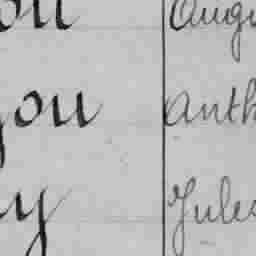 ou Augu
you Anth
y Jules